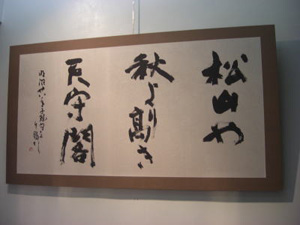 松山や
秋より高き
天守閣